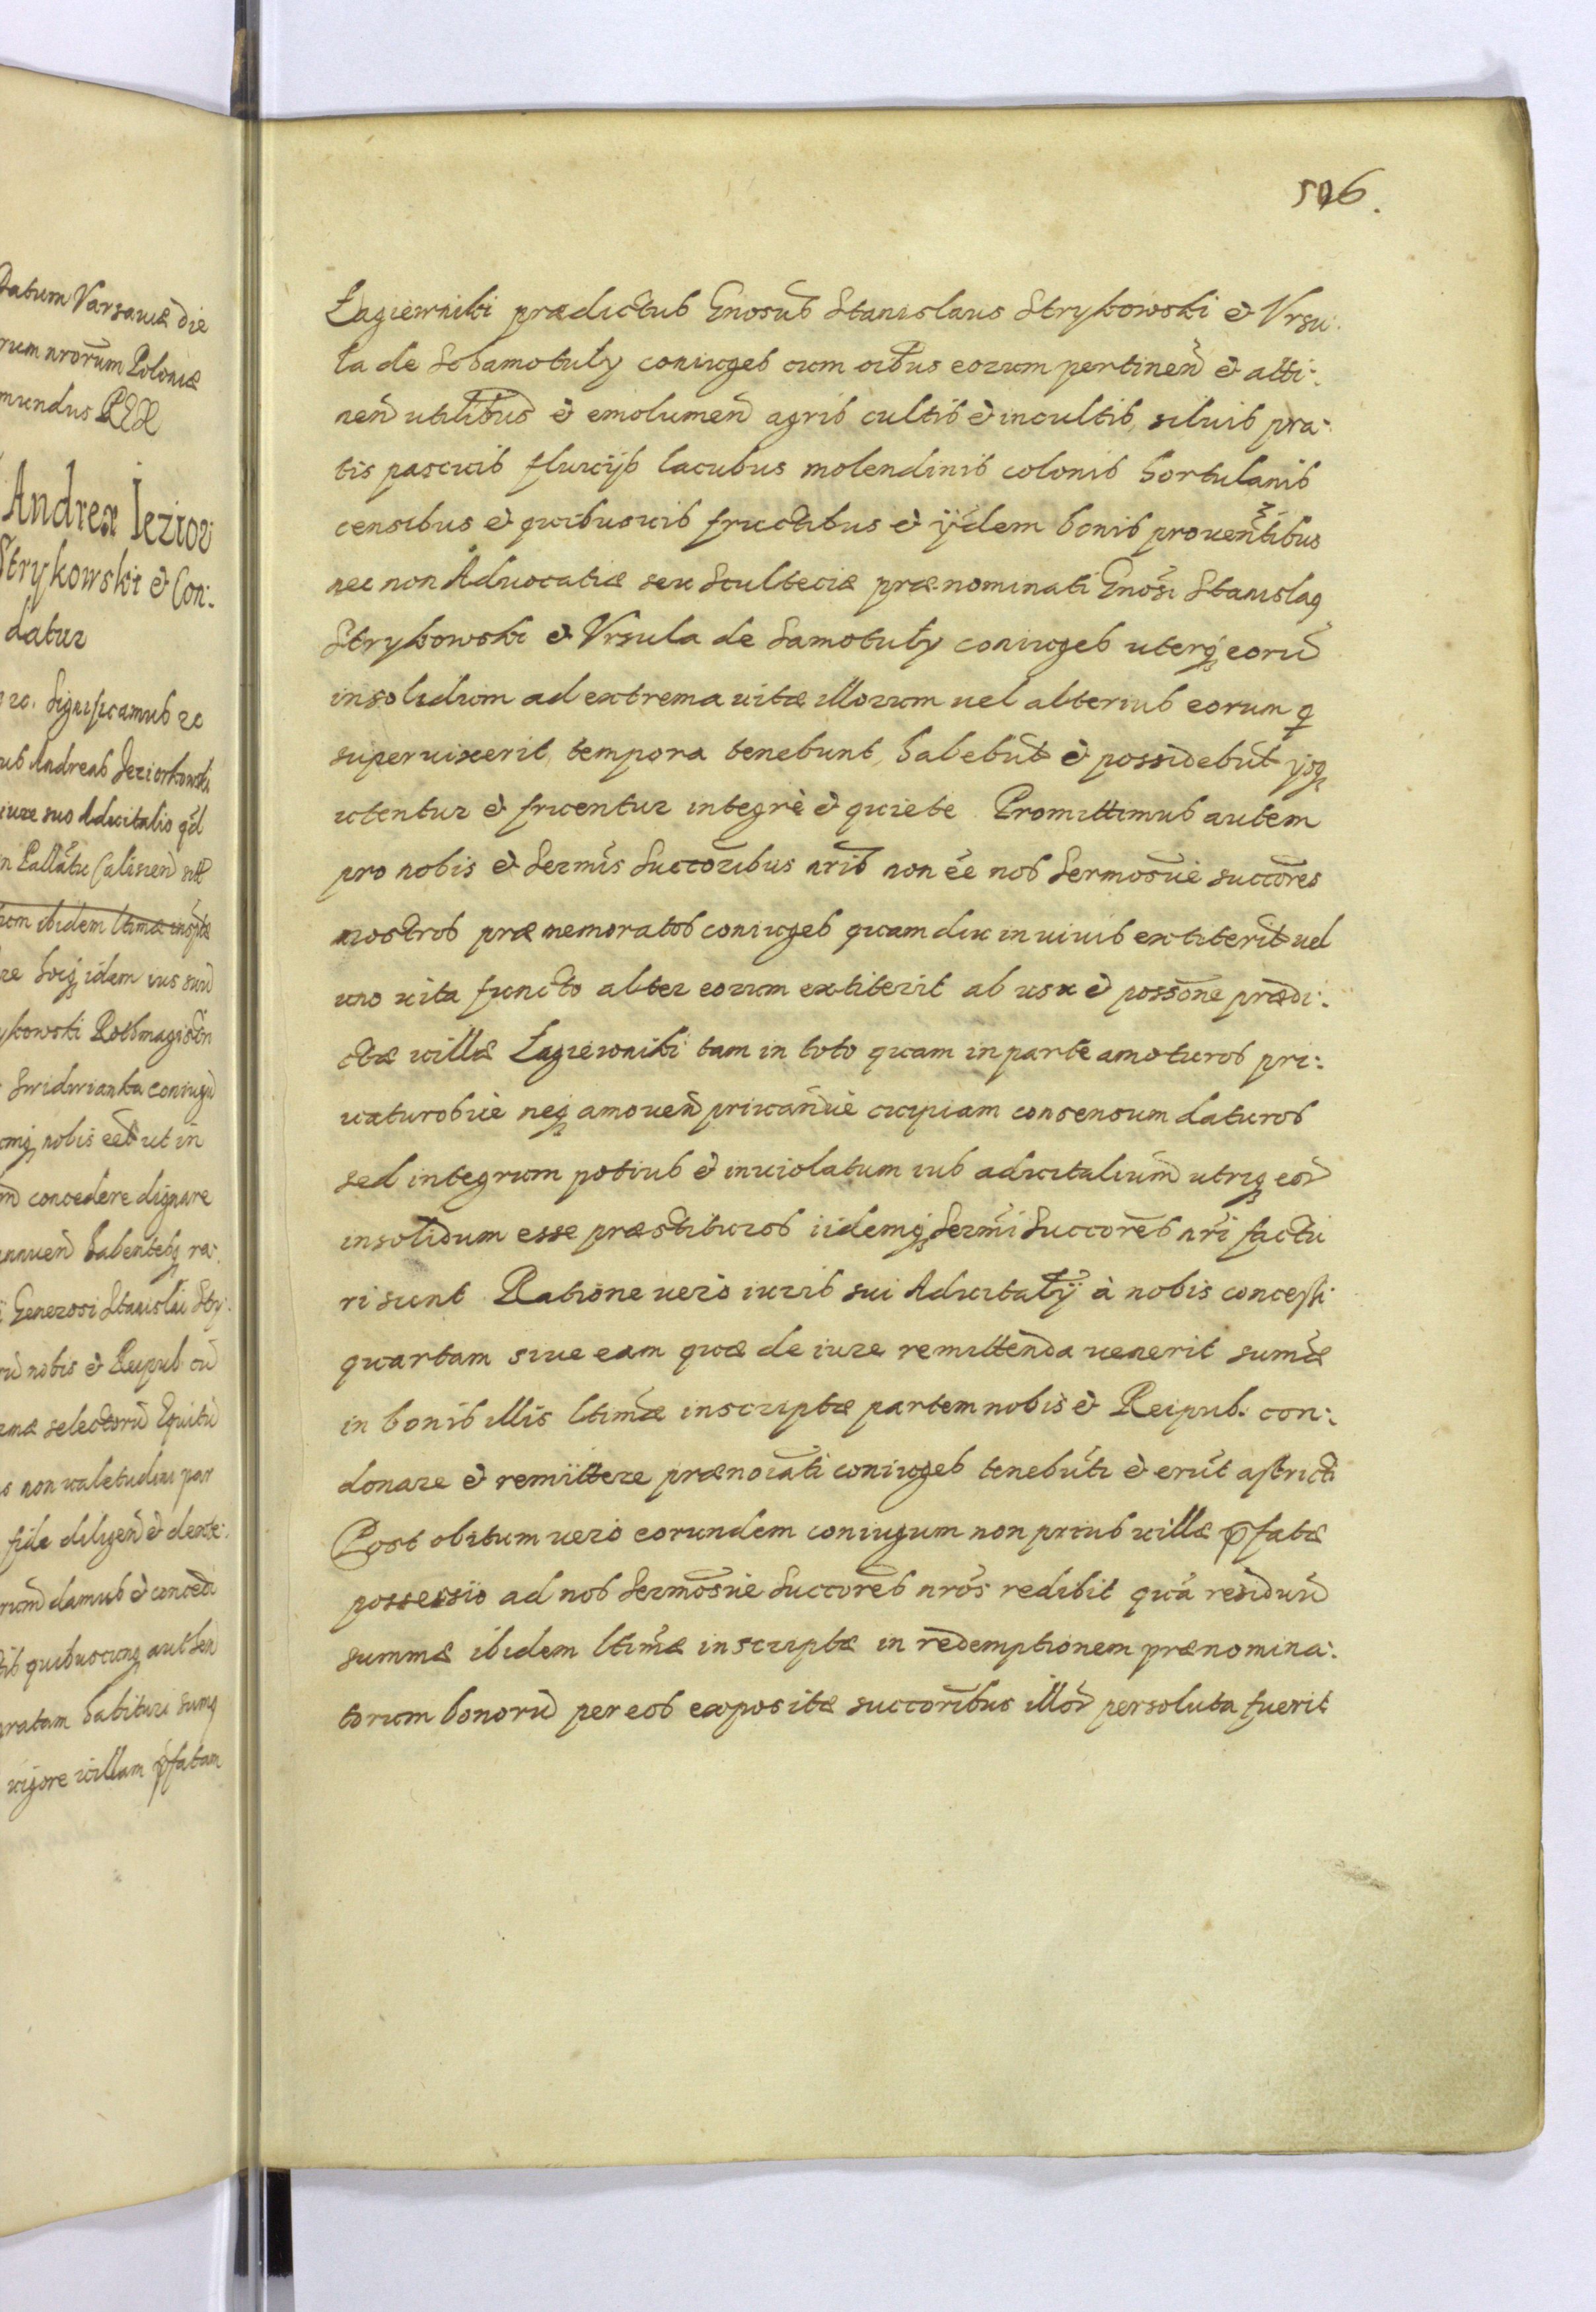 506.
Datum Varsaviæ die
rum nrorum Poloniæ
mundus REX
Andreæ Jezior
Strykowski & Con:
datur
Significamus
Andreas Jeziorkowski
iure suo Aduitalio qd
Pallatu Calisien
ibidem ltimæ
idem ius suu
ykowski Rothmagistri
Swidwianka coniugu
nobis eet ut in
concedere dignare
habentesq ra:
Generosi Stanislai Stry:
nobis & Reipub cu
selectoru Equitu
non valetudini par
fide diligen & dexte:
damus & concedi
quibuscunq authen
gratam habituri sumq
vigore villam pfatam
Łagiewniki prædictus Gnosus Stanislaus Strykowski & Vrsu:
la de Schamotuly coniuges cum oibus eorum pertinen & atti:
nen utilibus & emolumen agris cultis & incultis, siluis pra:
tis pascuis fluuijs lacubus molendinis colonis hortulanis
censibus & quibusuis fructibus & ijsdem bonis prouentibus
nec non Aduocatiæ seu Scultetiæ prænominati Gnosi Stanislaq
Strykowski & Vrsula de Samotuły coniuges uterq eoru
insolidum ad extrema uitæ illorum uel alterius eorum q
superuixerit, tempora tenebunt, habebut & possidebut ijsq
utentur & fruentur integrè & quiete Promittimus autem
pro nobis & Sermis Succoribus nris non ee nos Sermosue succores
nostros præmemoratos coniuges quam diu in uiuis extiterit uel
uno uita functo alter eorum extiterit ab usu & possone prædi:
ctæ uillæ Łagiewniki tam in toto quam in parte amoturos pri:
uaturosue neq amouen priuandue cuipiam consensum daturos
sed integrum potius & inuiolatum ius aduitalium utriq eor
insolidum esse præstituros iidemq Sermi Succores nri factu
ri sunt Ratione uerò iuris sui Aduitalÿ à nobis concessi
quartam siue eam quæ de iure remittenda uenerit sumæ
in bonis illis ltimæ inscriptæ partem nobis & Reipub. con:
donare & remittere prænoiati coniuges tenebuti & erut astricti
Post obitum uero eorundem coniugum non prius uillæ pfatæ
possessio ad nos Sermosue Succores nros redibit qua residuu
summæ ibidem ltimæ inscriptæ in redemptionem prænomina:
torum bonoru per eos expositæ succoribus illor persoluta fuerit